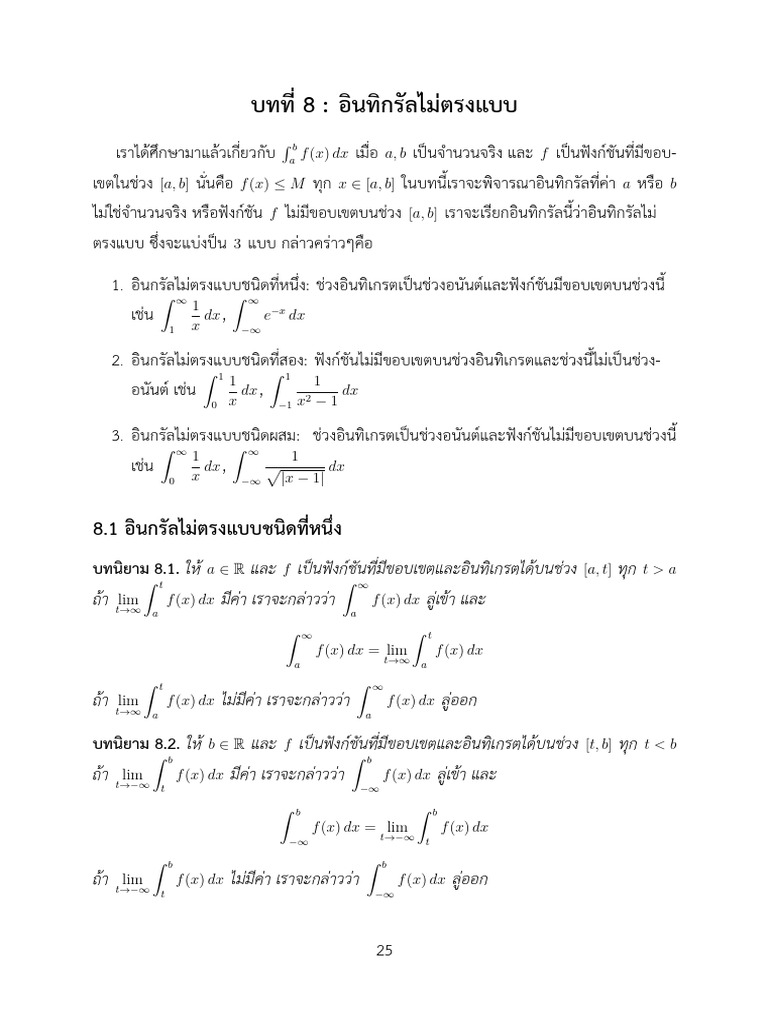 บทที่ 8 : อินทิกรัลไม่ตรงแบบ
เราได้ศึกษามาแล้วเกี่ยวกับ ∫_a^b f(x) dx เมื่อ a, b เป็นจำนวนจริง และ f เป็นฟังก์ชันที่มีขอบ-
เขตในช่วง [a, b] นั่นคือ f(x) ≤ M ทุก x ∈ [a, b] ในบทนี้เราจะพิจารณาอินทิกรัลที่ค่า a หรือ b
ไม่ใช่จำนวนจริง หรือฟังก์ชัน f ไม่มีขอบเขตบนช่วง [a, b] เราจะเรียกอินทิกรัลนี้ว่าอินทิกรัลไม่
ตรงแบบ ซึ่งจะแบ่งป็น 3 แบบ กล่าวคร่าวๆคือ
1. อินกรัลไม่ตรงแบบชนิดที่หนึ่ง: ช่วงอินทิเกรตเป็นช่วงอนันต์และฟังก์ชันมีขอบเขตบนช่วงนี้
เช่น ∫_1^∞ 1/x dx, ∫_{-∞}^∞ e^{-x} dx
2. อินกรัลไม่ตรงแบบชนิดที่สอง: ฟังก์ชันไม่มีขอบเขตบนช่วงอินทิเกรตและช่วงนี้ไม่เป็นช่วง-
อนันต์ เช่น ∫_0^1 1/x dx, ∫_{-1}^1 1/(x^2 − 1) dx
3. อินกรัลไม่ตรงแบบชนิดผสม: ช่วงอินทิเกรตเป็นช่วงอนันต์และฟังก์ชันไม่มีขอบเขตบนช่วงนี้
เช่น ∫_0^∞ 1/x dx, ∫_{-∞}^∞ 1/√|x − 1| dx
8.1 อินกรัลไม่ตรงแบบชนิดที่หนึ่ง
บทนิยาม 8.1. ให้ a ∈ ℝ และ f เป็นฟังก์ชันที่มีขอบเขตและอินทิเกรตได้บนช่วง [a, t] ทุก t > a
ถ้า lim_{t→∞} ∫_a^t f(x) dx มีค่า เราจะกล่าวว่า ∫_a^∞ f(x) dx ลู่เข้า และ
∫_a^∞ f(x) dx = lim_{t→∞} ∫_a^t f(x) dx
ถ้า lim_{t→∞} ∫_a^t f(x) dx ไม่มีค่า เราจะกล่าวว่า ∫_a^∞ f(x) dx ลู่ออก
บทนิยาม 8.2. ให้ b ∈ ℝ และ f เป็นฟังก์ชันที่มีขอบเขตและอินทิเกรตได้บนช่วง [t, b] ทุก t < b
ถ้า lim_{t→−∞} ∫_t^b f(x) dx มีค่า เราจะกล่าวว่า ∫_{−∞}^b f(x) dx ลู่เข้า และ
∫_{−∞}^b f(x) dx = lim_{t→−∞} ∫_t^b f(x) dx
ถ้า lim_{t→−∞} ∫_t^b f(x) dx ไม่มีค่า เราจะกล่าวว่า ∫_{−∞}^b f(x) dx ลู่ออก
25